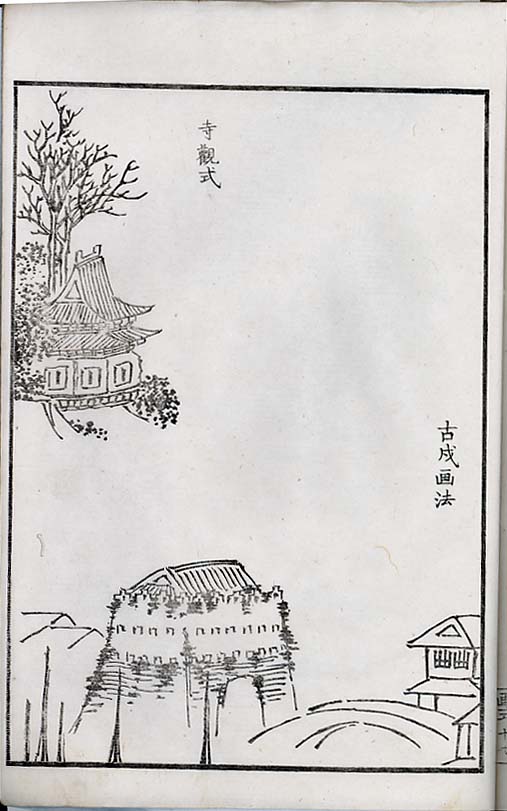 古戍画法
寺觀式